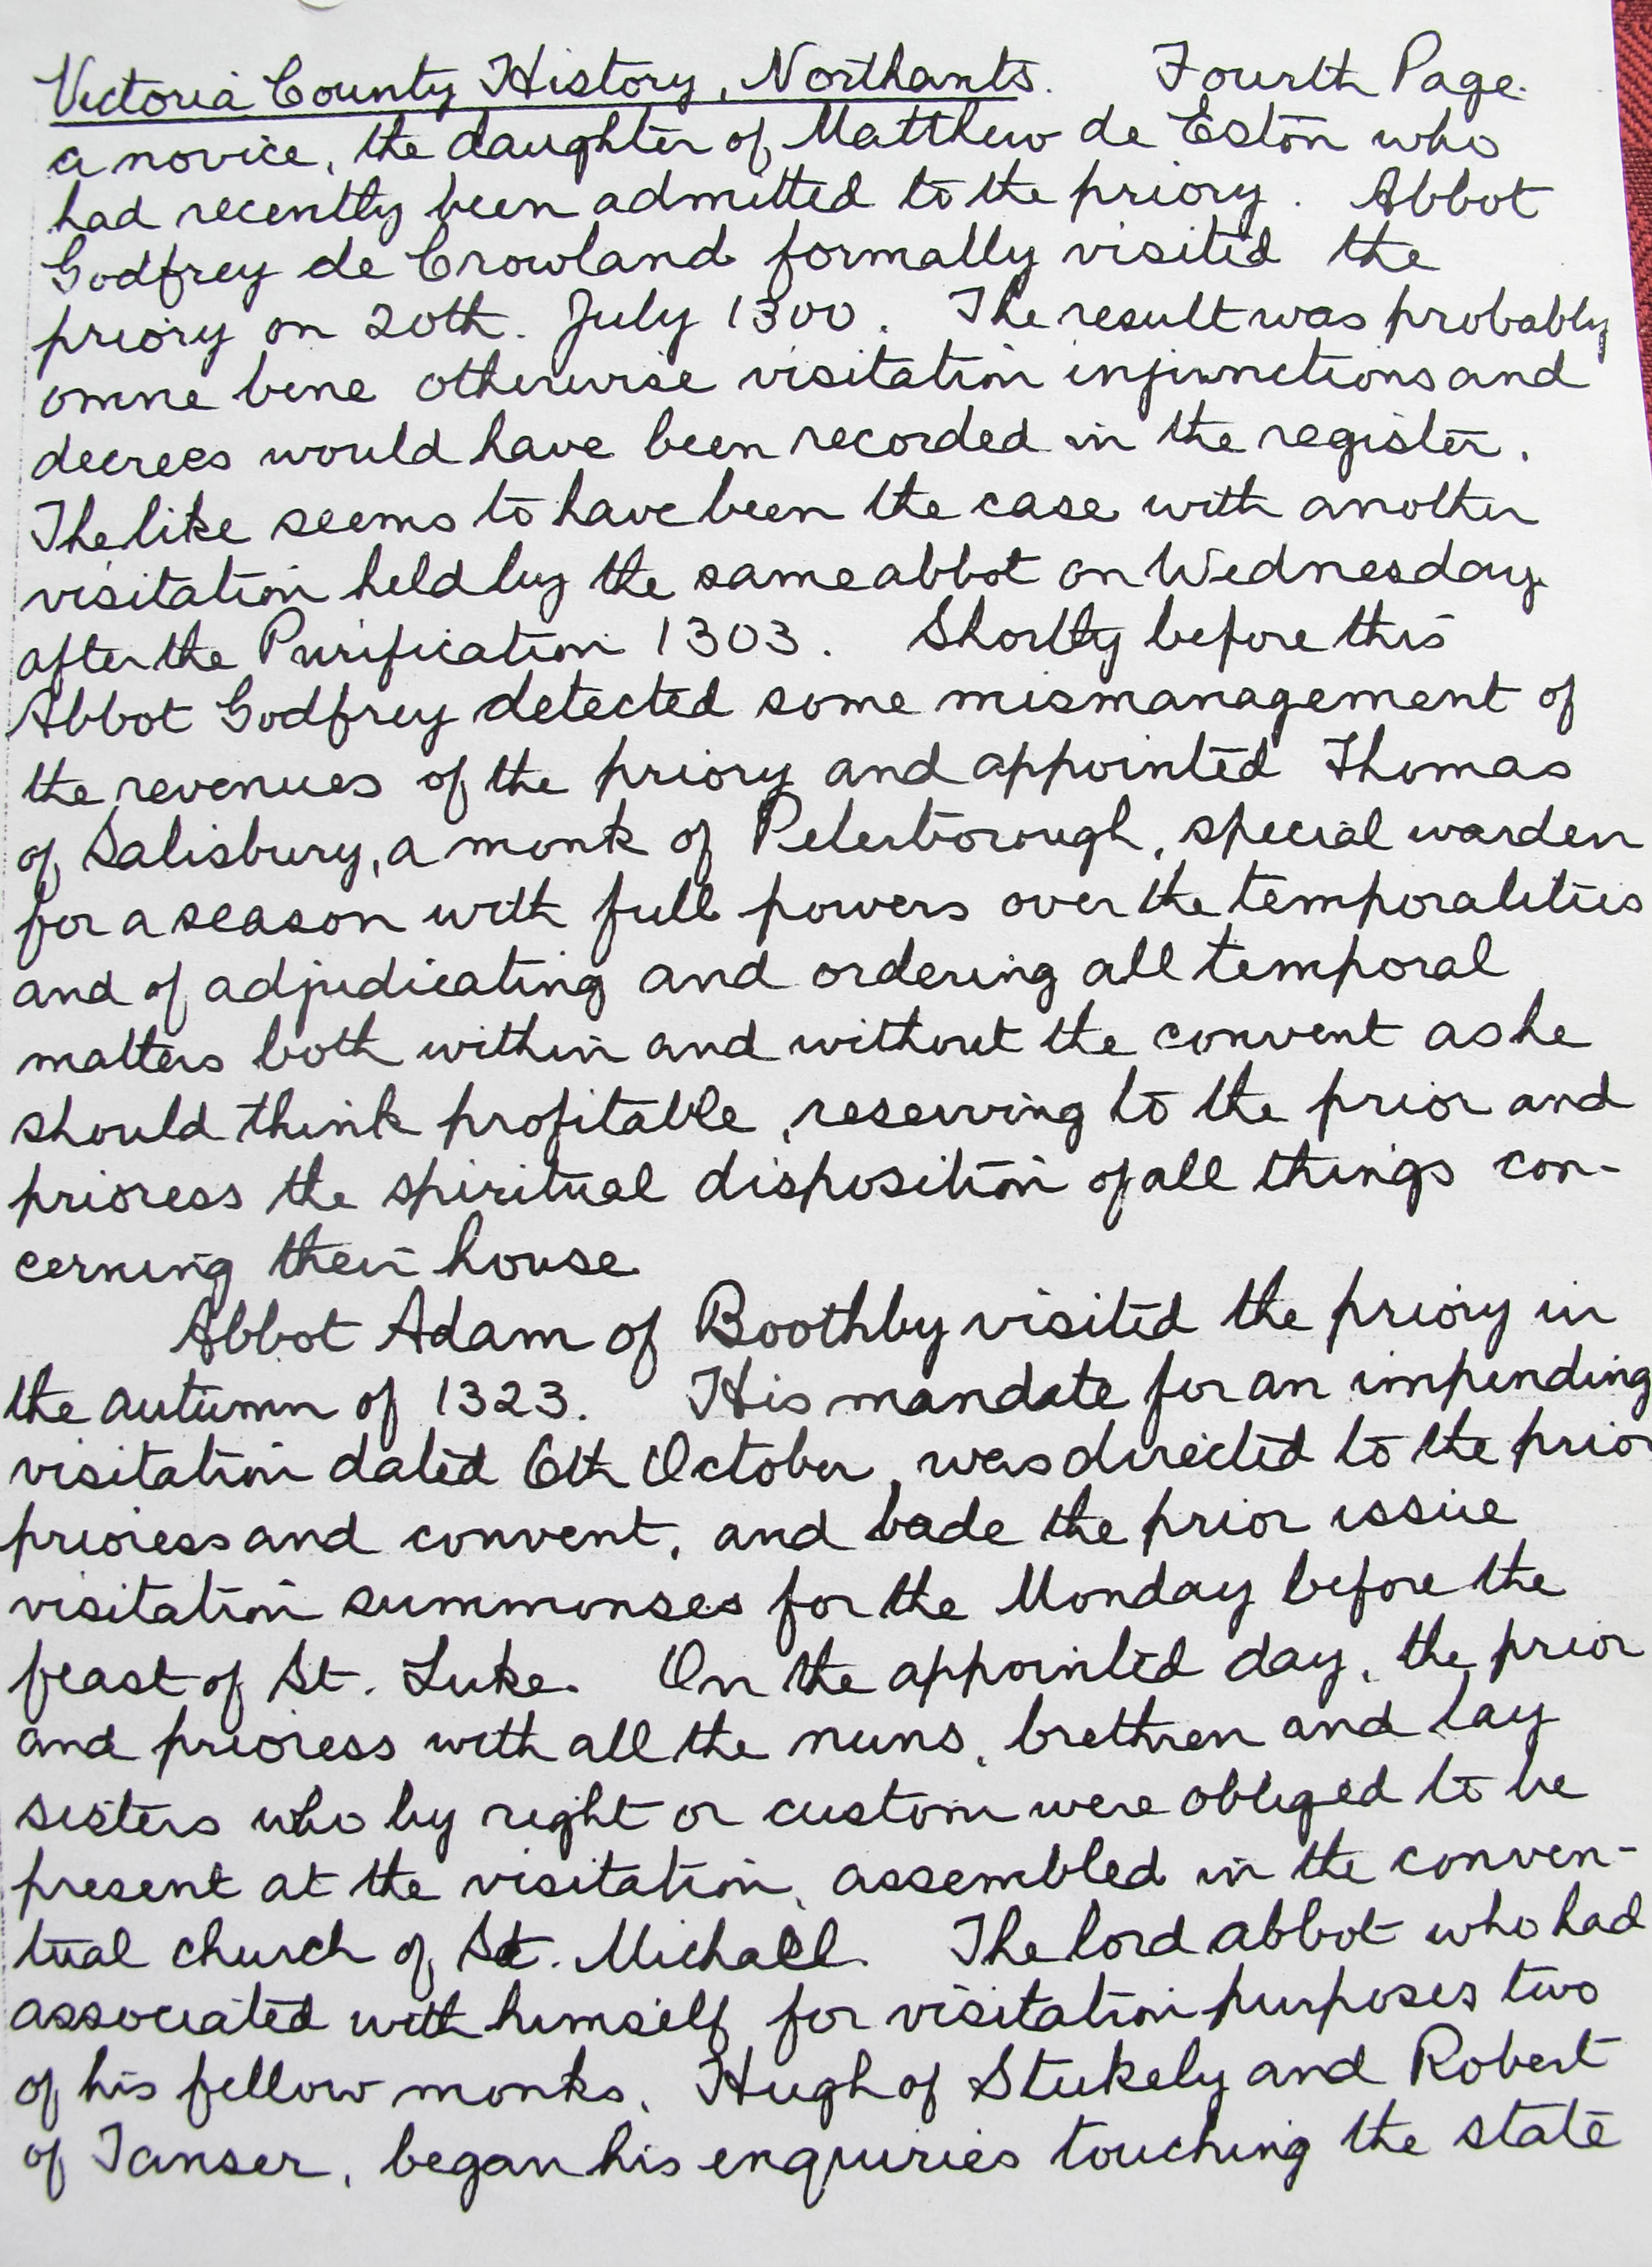 Victoria County History, Northants. Fourth Page.
a novice, the daughter of Matthew de Eston who
had recently been admitted to the priory. Abbot
Godfrey de Crowland formally visited the
priory on 20th. July 1300. The result was probably
omne bene otherwise visitation injunctions and
decrees would have been recorded in the register.
The like seems to have been the case with another
visitation held by the same abbot on Wednesday
after the Purification 1303. Shortly before this
Abbot Godfrey detected some mismanagement of
the revenues of the priory and appointed Thomas
of Salisbury, a monk of Peterborough, special warden
for a season with full powers over the temporalities
and of adjudicating and ordering all temporal
matters both within and without the convent as he
should think profitable, reserving to the prior and
prioress the spiritual disposition of all things con-
cerning their house
Abbot Adam of Boothby visited the priory in
the autumn of 1323. His mandate for an impending
visitation dated 6th October, was directed to the prior
prioress and convent, and bade the prior issue
visitation summonses for the Monday before the
feast of St. Luke. On the appointed day, the prior
and prioress with all the nuns, brethren and lay
sisters who by right or custom were obliged to be
present at the visitation, assembled in the conven-
tual church of St. Michael. The lord abbot who had
associated with himself for visitation purposes two
of his fellow monks, Hugh of Stukely and Robert
of Tanser, began his enquiries touching the state